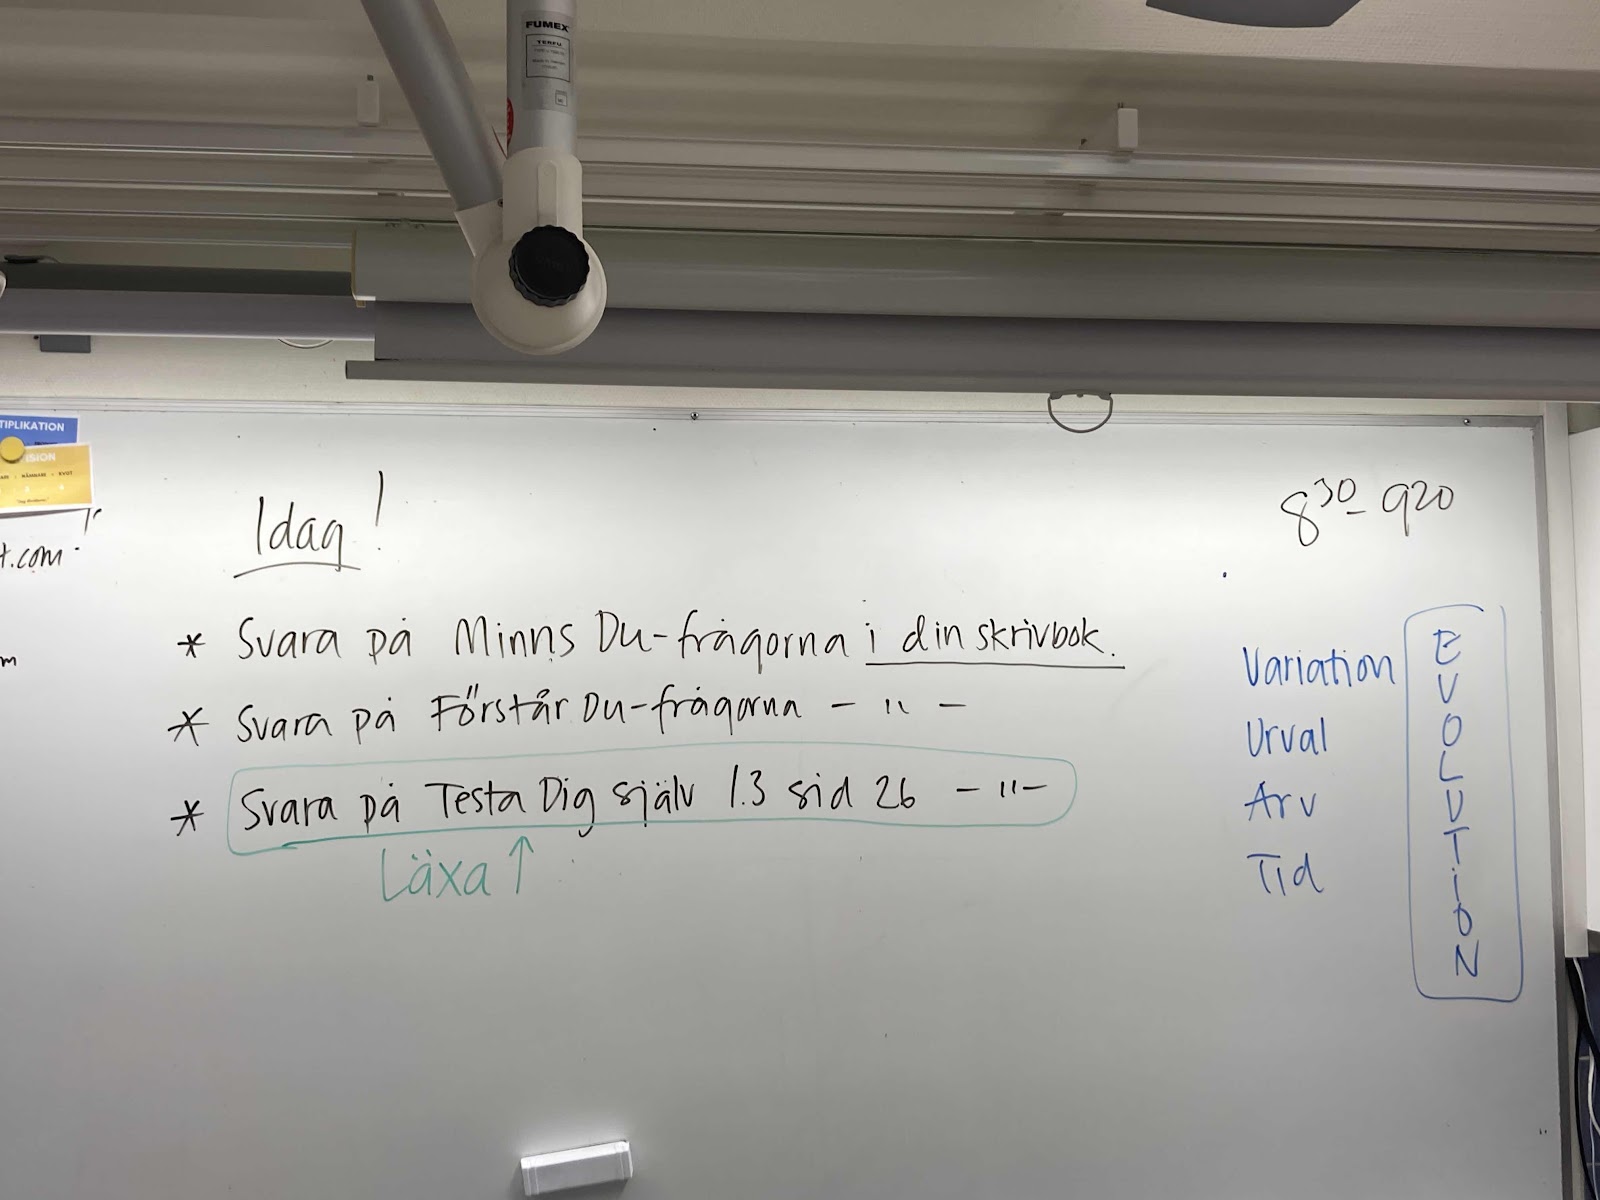 FUMEX
TERFU
TIPLIKATION
ISION
NÄMNARE = KVOT
t.com
m
Idag!
8³⁰- 920
* Svara på Minns Du-frågorna i din skrivbok.
* Svara på Förstår Du-frågorna - " -
* Svara på Testa Dig själv 1.3 sid 26 - " -
Läxa ↑
Variation
Urval
Arv
Tid
EVOLUTION